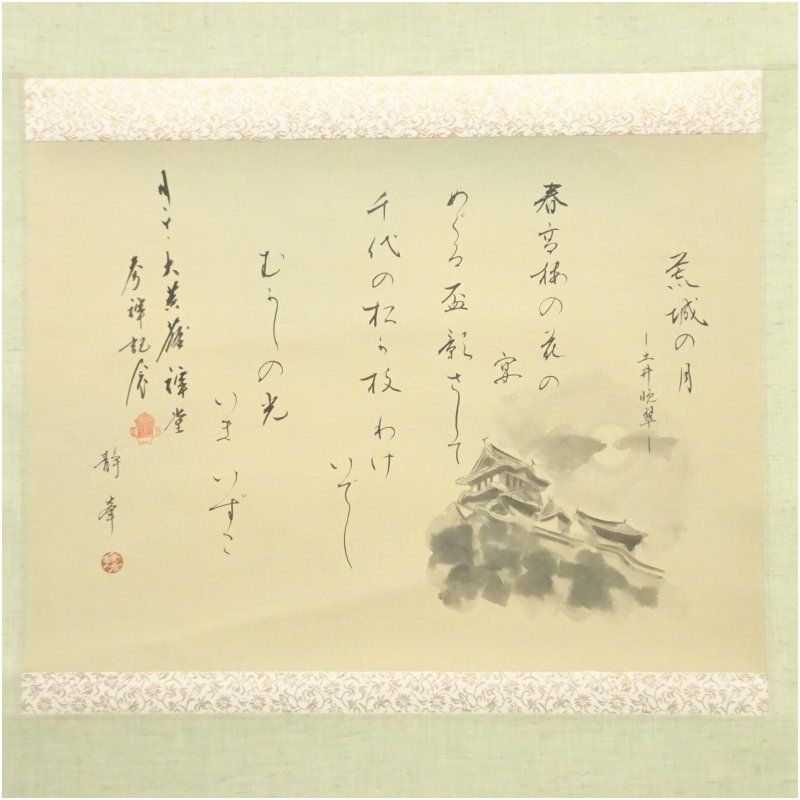 荒城の月
ー土井晩翠ー
春高楼の花の
宴
めぐる盃影さして
千代の松が枝わけ
いでし
むかしの光
いまいずこ
大黄蘗禅堂
静峯